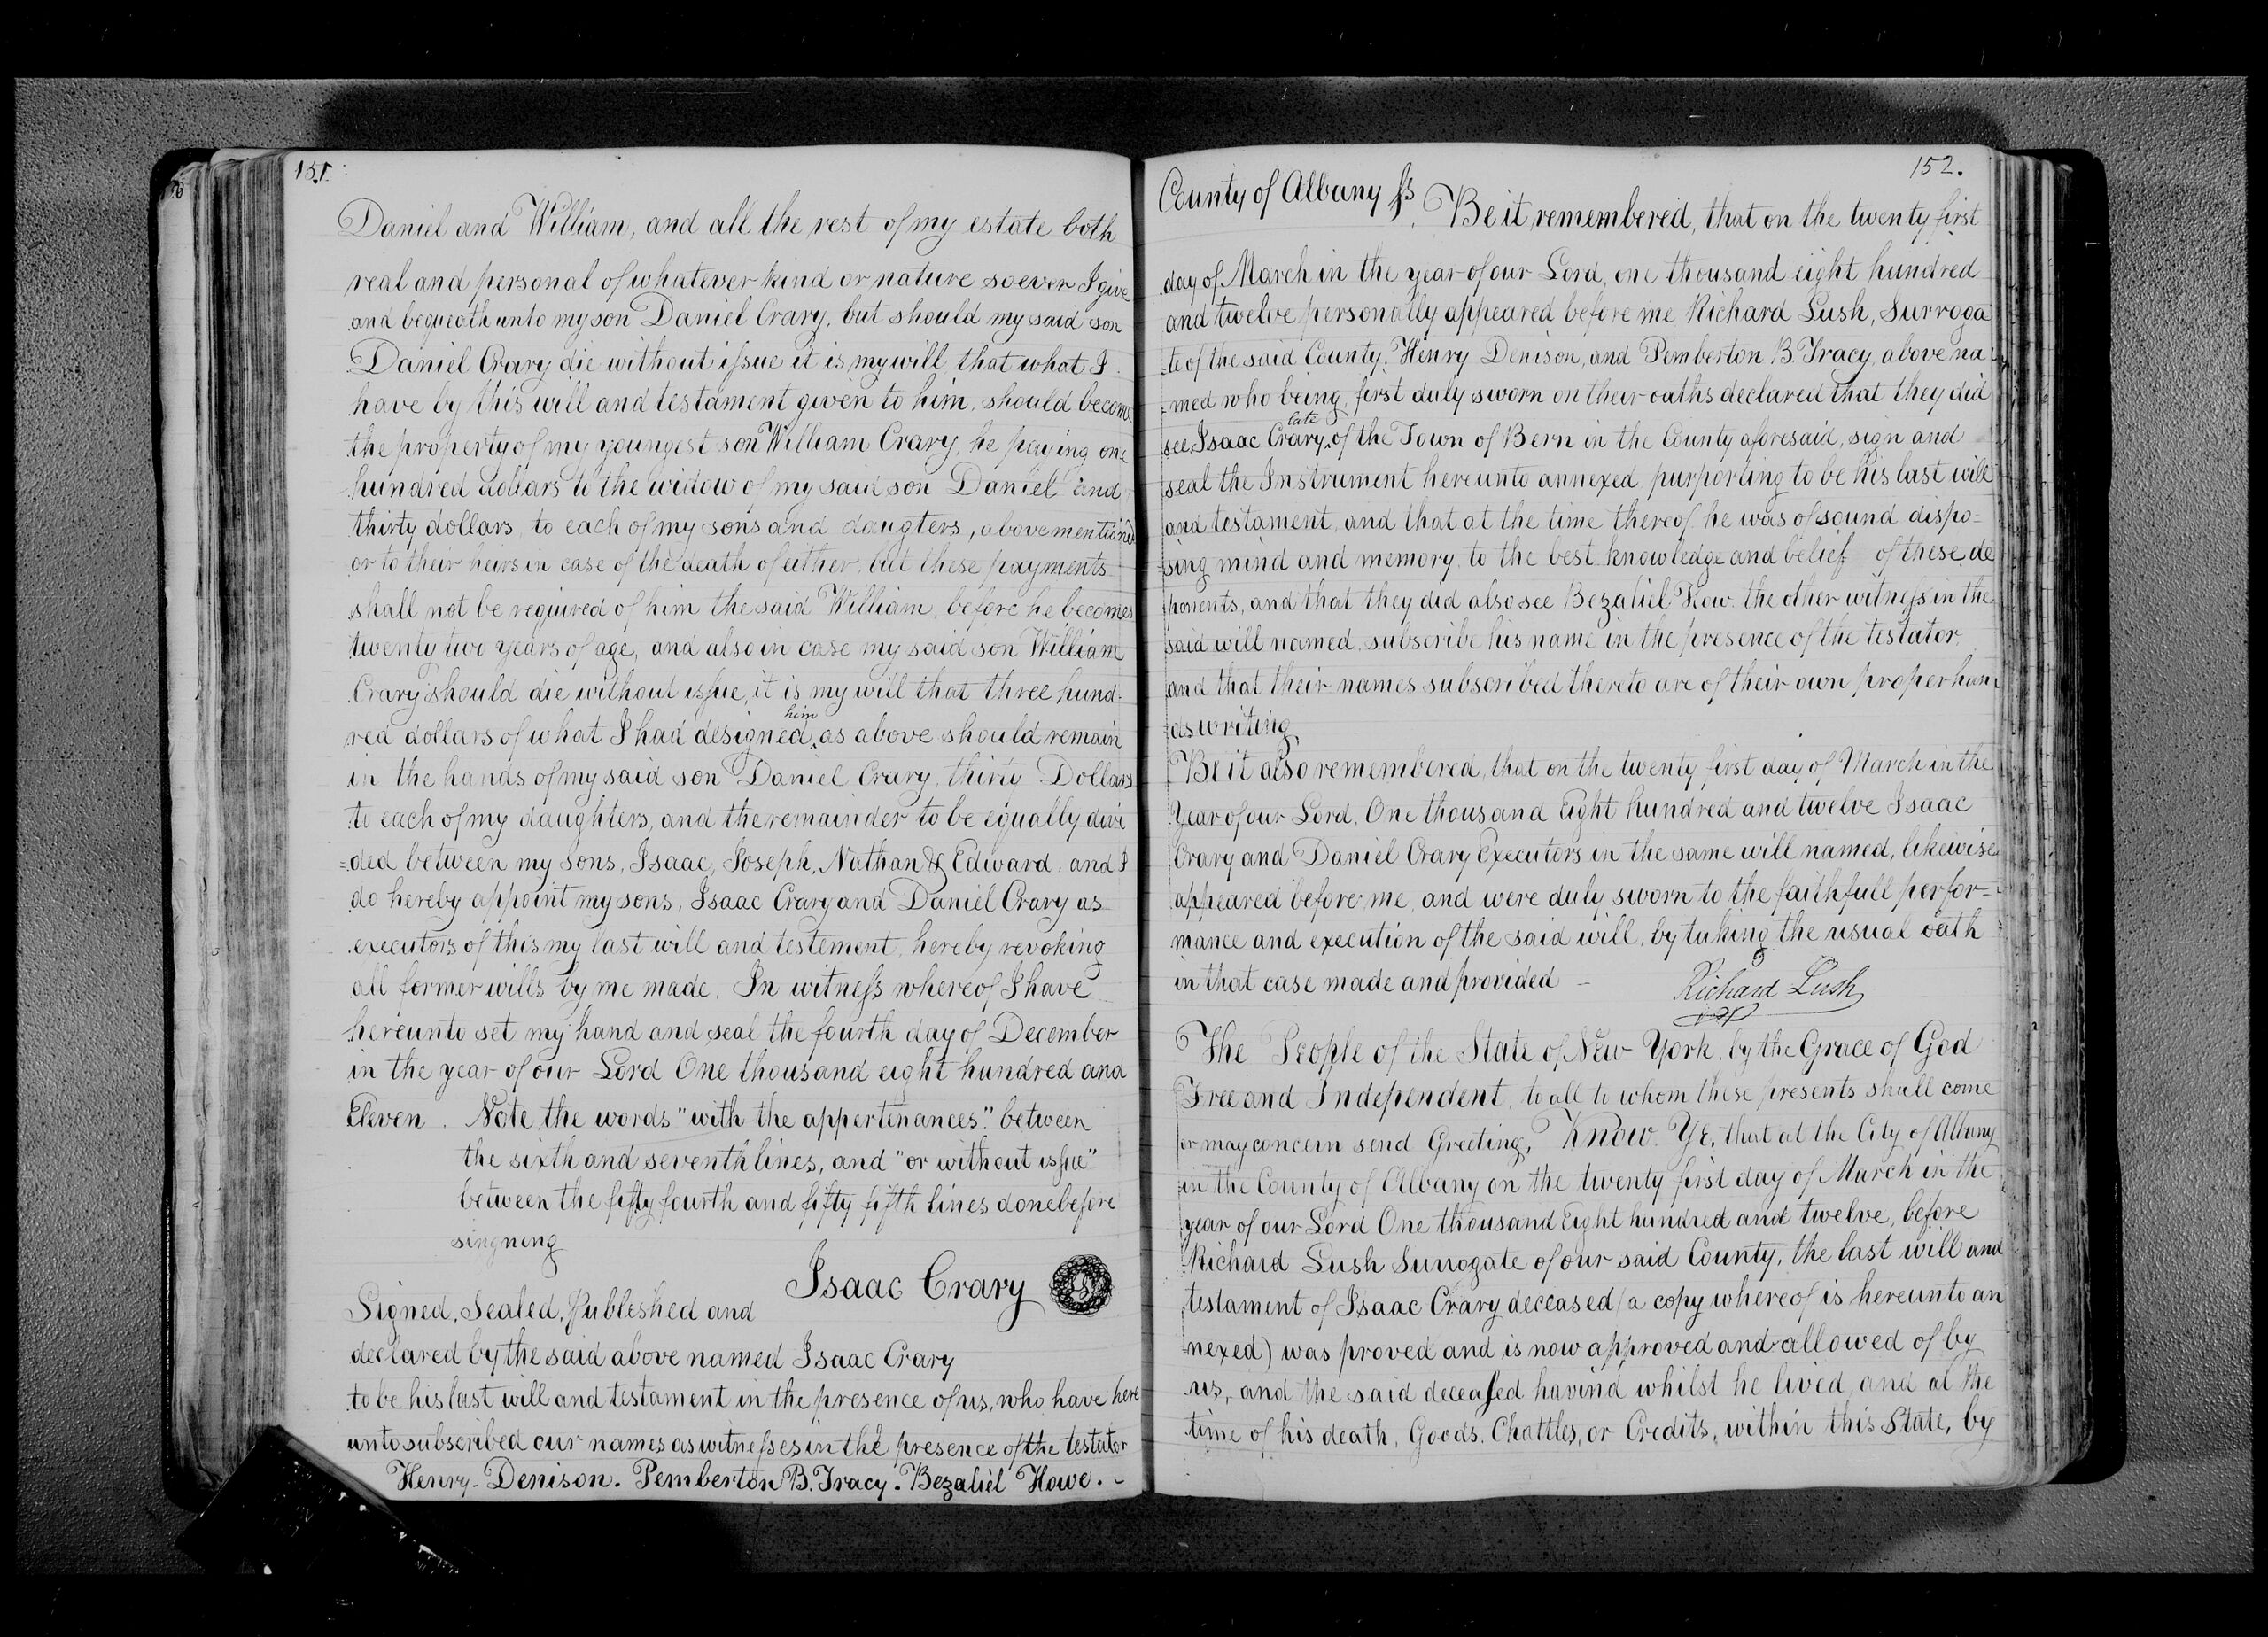 151.
Daniel and William, and all the rest of my estate both
real and personal of whatever kind or nature soever I give
and bequeath unto my son Daniel Crary, but should my said son
Daniel Crary die without issue it is my will, that what I
have by this will and testament given to him, should become
the property of my youngest son William Crary, he paying one
hundred dollars to the widow of my said son Daniel and
thirty dollars, to each of my sons and daugters, above mentioned
or to their heirs in case of the death of either, but these payments
shall not be required of him the said William, before he becomes
twenty two years of age, and also in case my said son William
Crary should die without issue, it is my will that three hund-
him
red dollars of what I had designed as above should remain
in the hands of my said son Daniel Crary, thirty Dollars
to each of my daughters, and the remainder to be equally divi
=ded between my sons, Isaac, Joseph, Nathan & Edward, and I
do hereby appoint my sons, Isaac Crary and Daniel Crary as
executors of this my last will and testement, hereby revoking
all former wills by me made. In witness whereof I have
hereunto set my hand and seal the fourth day of December
in the year of our Lord One thousand eight hundred and
Eleven. Note the words "with the appertenances" between
the sixth and seventh lines, and "or without issue"
between the fifty fourth and fifty fifth lines done before
singneng
Isaac Crary LS
Signed, Sealed, Publeshed and
declared by the said above named Isaac Crary
to be his last will and testament in the presence of us, who have here
unto subscribed our names as witnesses in the presence of the testator
Henry Denison. Pemberton B. Tracy. Bezaliel Howe. -
152.
County of Albany ss Be it remembered, that on the twenty first
day of March in the year of our Lord, one thousand eight hundred
and twelve personally appeared before me Richard Lush, Surroga
=te of the said County, Henry Denison, and Pemberton B. Tracy, above na
=med who being first duly sworn on their oaths declared that they did
late
see Isaac Crary of the Town of Bern in the County aforesaid, sign and
seal the Instrument hereunto annexed purporting to be his last will
and testament, and that at the time thereof he was of sound dispo=
sing mind and memory, to the best knowledge and belief of these de
ponents, and that they did also see Bezaliel How the other witness in the
said will named, subscribe his name in the presence of the testator,
and that their names subscribed thereto are of their own proper han
=dswriting.
Be it also remembered, that on the twenty first day of March in the
Year of our Lord, One thousand Eight hundred and twelve Isaac
Crary and Daniel Crary Executors in the same will named, likewise
appeared before me, and were duly sworn to the faithfull perfor=
mance and execution of the said will, by taking the usual oath
in that case made and provided - Richard Lush
The People of the State of New York, by the Grace of God
Free and Independent, to all to whom these presents shall come
or may concern send Greeting, Know Ye, that at the City of Albany
in the County of Albany on the twenty first day of March in the
year of our Lord One thousand Eight hundred and twelve, before
Richard Lush Surrogate of our said County, the last will and
testament of Isaac Crary deceased (a copy whereof is hereunto an
nexed) was proved and is now approved and allowed of by
us, and the said deceased havind whilst he lived, and at the
time of his death, Goods, Chattles, or Credits, within this State, by